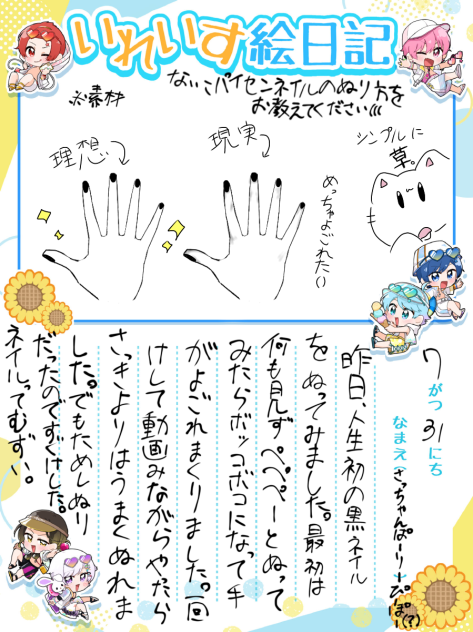 いれいす絵日記
ないこパイセンネイルのぬり方を
お教えてください(((
※素材
理想
現実
シンプルに
草。
めっちゃよごれた()
7がつ31にち
なまえ(さっちゃんぱーりーぴーぽー(?)
昨日、人生初の黒ネイル
をぬってみました。最初は
何も見ずぺぺぺーとぬって
みたらボッコボコになって手
がよごれまくりました。1回
けして動画みながらやたら
さっきよりはうまくぬれま
した。でもためしぬり
だったのですぐけした。
ネイルってむずい。